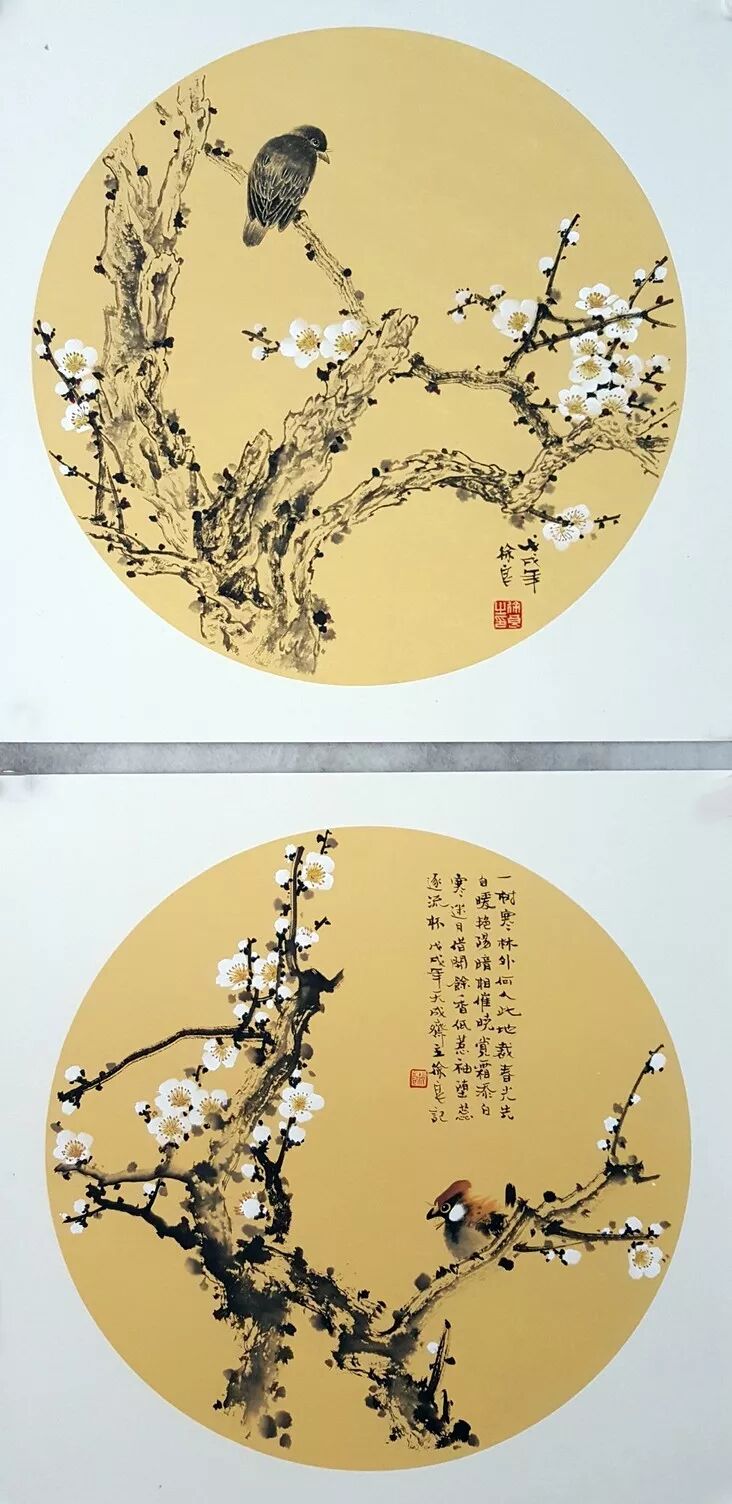 戊戌年
徐良
徐良之印
一树寒林外何人此地栽春光先
自暖艳陽暗相催晓賞霜添白
寒迷月借開餘香低惹袖堕蕊
逐流杯戊戌年天成齋主徐良記